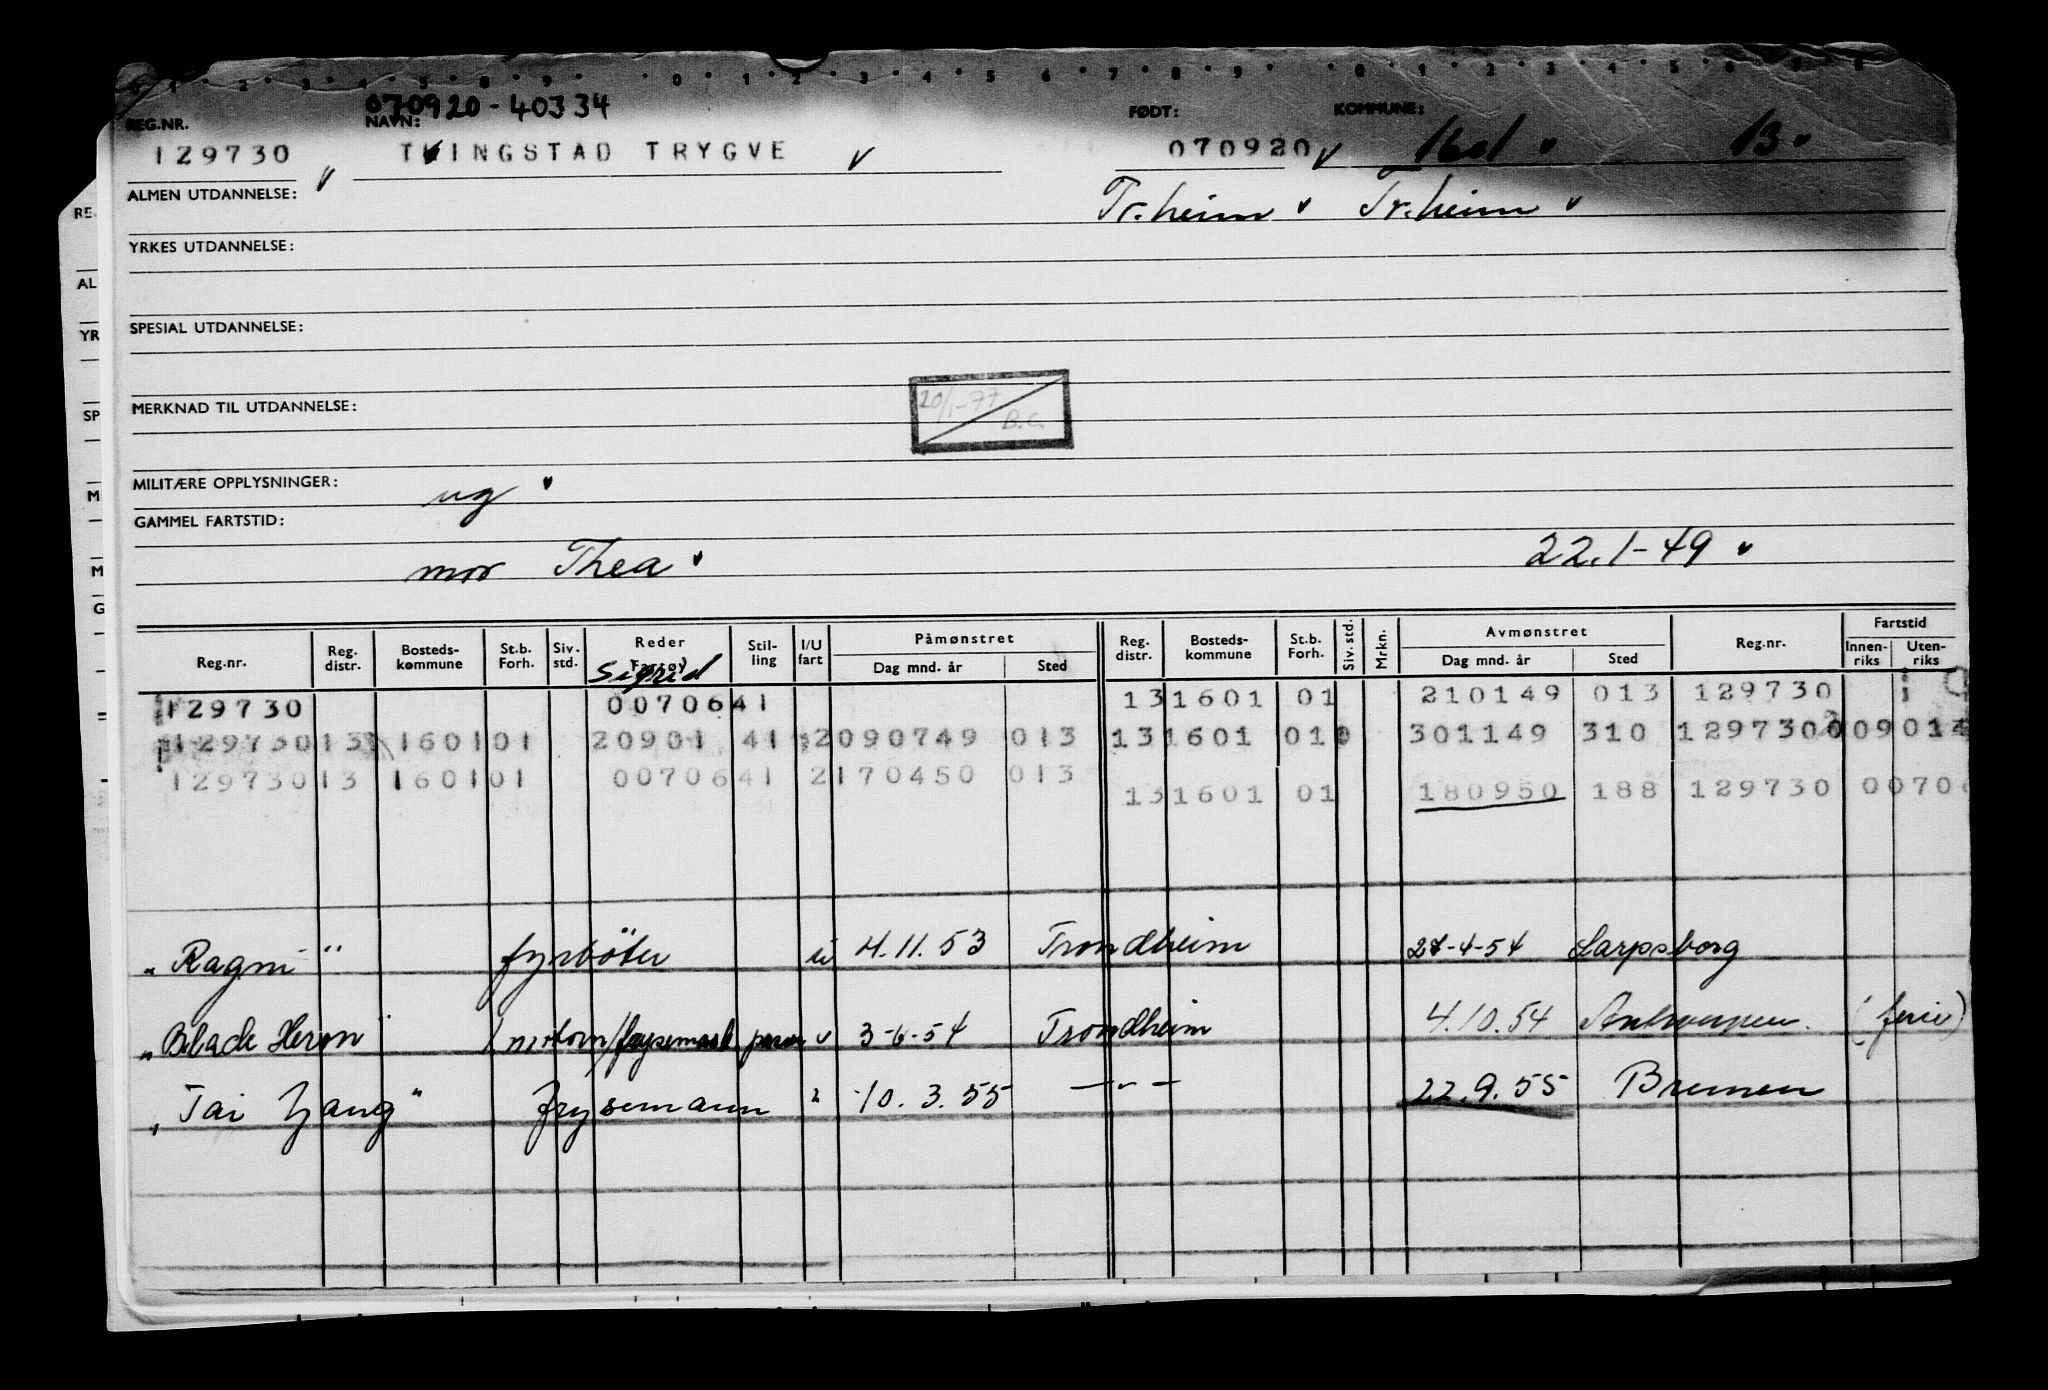 070920-40334
REG.NR. NAVN: FØDT: KOMMUNE:
129730 TVINGSTAD TRYGVE 070920 1601 13
ALMEN UTDANNELSE: Tr.heim Tr.heim
YRKES UTDANNELSE:
SPESIAL UTDANNELSE:
20/1-77
B.C.
MERKNAD TIL UTDANNELSE:
MILITÆRE OPPLYSNINGER: ug
GAMMEL FARTSTID:
mor Thea 22.1-49
Reg.nr. Reg. distr. Bosteds- kommune St.b. Forh. Siv. std. Reder Fartøy Stil- ling I/U fart Påmønstret Dag mnd. år Sted Reg. distr. Bosteds- kommune St.b. Forh. Siv. std. Mrkn. Avmønstret Dag mnd. år Sted Reg.nr. Fartstid Innen- riks Uten- riks
Sigrid
129730 0070641 131601 01 210149 013 129730
129730 13 1601 01 20901 41 2 090749 013 131601 01 301149 310 129730 009014
129730 13 1601 01 0070641 2 170450 013 131601 01 180950 188 129730 0070
"Ragni" fyrbøter u 4.11.53 Trondheim 4-54 Sarpsborg
Heron" 3-6-54 Trondheim 4.10.54 Antwerpen (ferie)
"Tai Yang" frysemann 10.3.55 -"- 22.9.55 Bremen